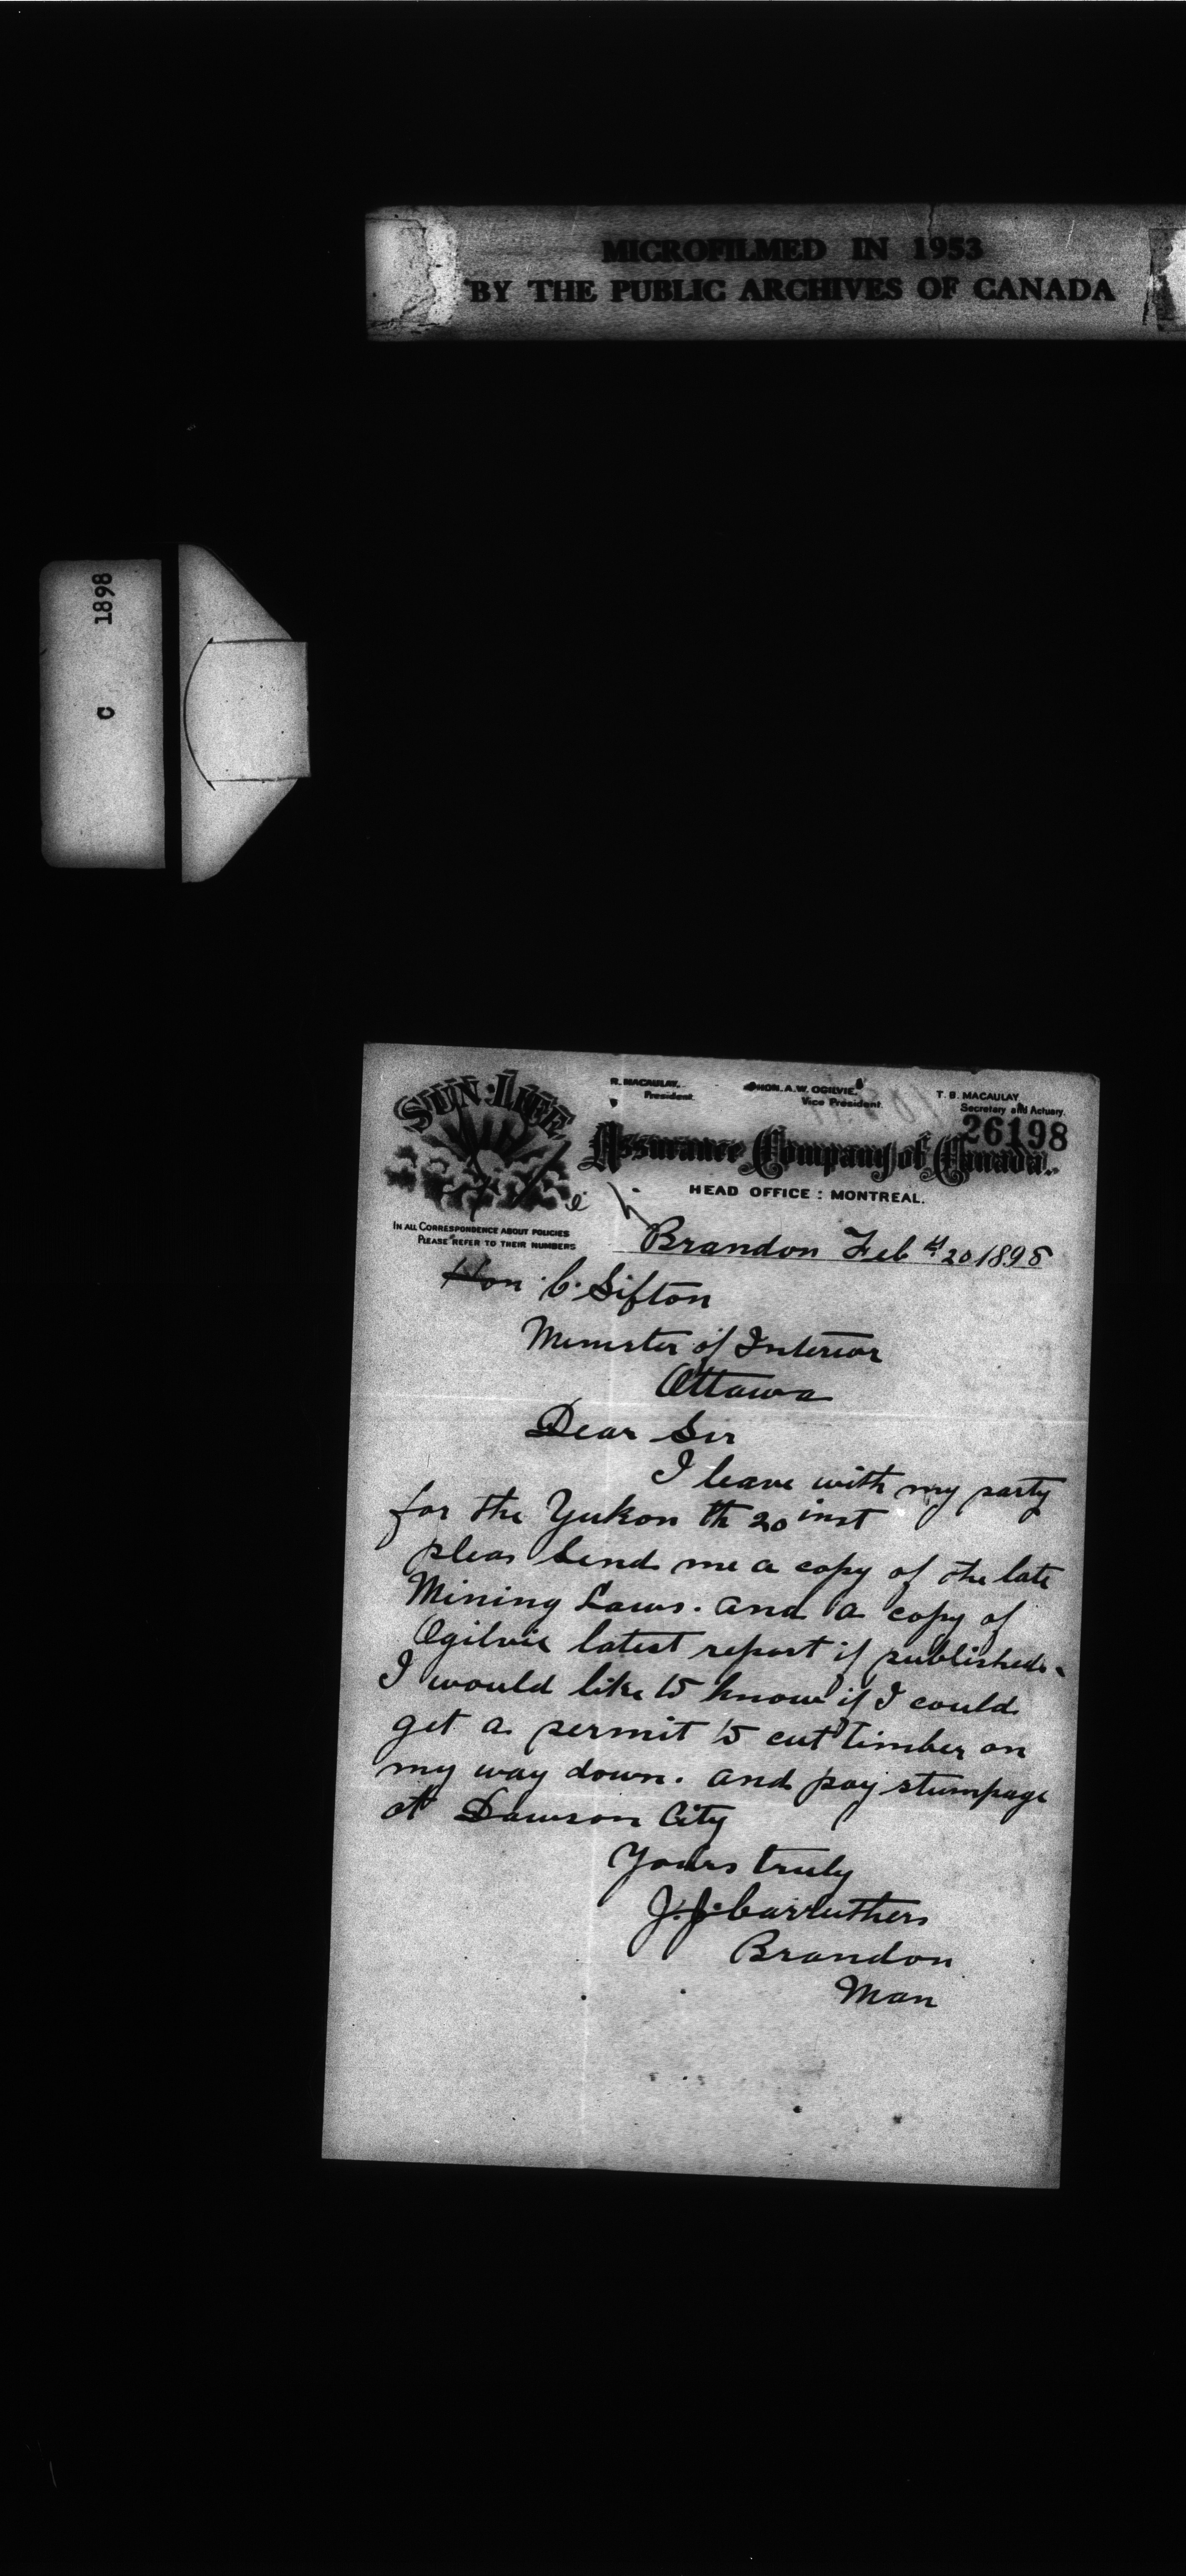 MICROFILMED IN 1953
BY THE PUBLIC ARCHIVES OF CANADA
C 1898
SUN LIFE
R. MACAULAY,
President.
HON. A.W. OGILVIE,
Vice President.
T. B. MACAULAY
Secretary and Actuary.
26198
Assurance Company of Canada.
HEAD OFFICE : MONTREAL.
IN ALL CORRESPONDENCE ABOUT POLICIES
PLEASE REFER TO THEIR NUMBERS
Brandon Feb 20 1898
Hon C. Sifton
Minister of Interior
Ottawa
Dear Sir
I leave with my party
for the Yukon th 20 inst
pleas send me a copy of the late
Mining Laws. and a copy of
Ogilvie latest report if published.
I would like to know if I could
get a permit to cut timber on
my way down. and pay stumpage
at Dawson City
Yours truly
J. J. Carruthers
Brandon
Man